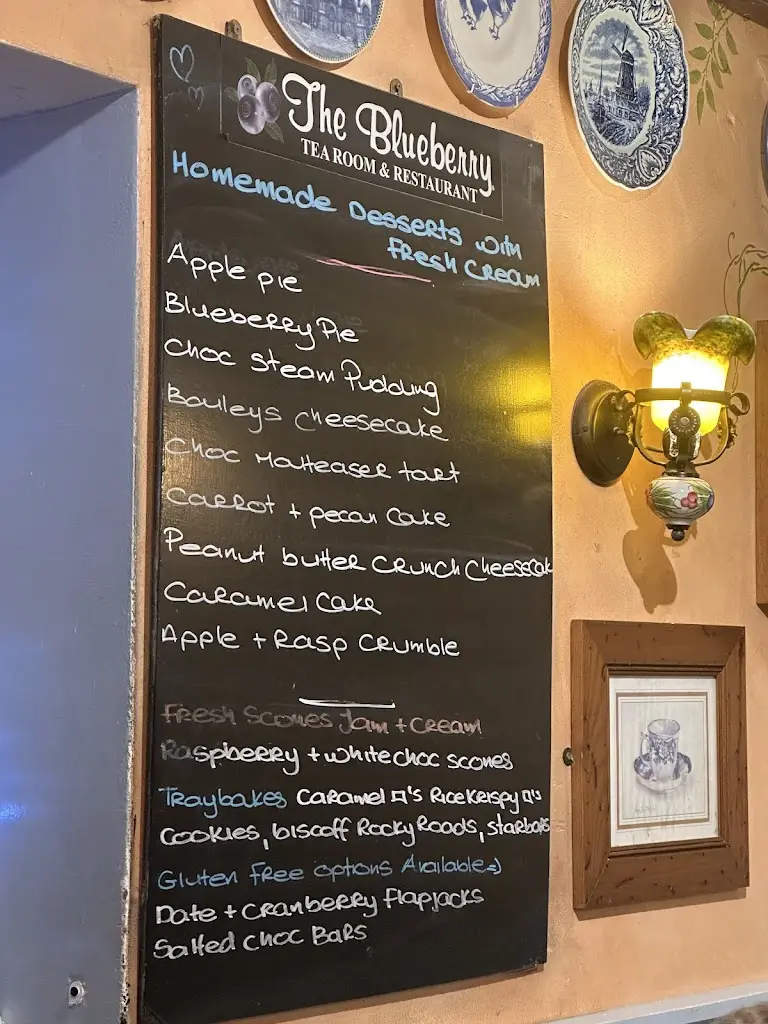 The Blueberry
TEA ROOM & RESTAURANT
Homemade Desserts with
Fresh Cream
Apple pie
Blueberry Pie
Choc Steam Pudding
Baileys cheesecake
Choc Malteaser tart
Carrot + pecan Cake
Peanut butter Crunch Cheesecak
Caramel Cake
Apple + Rasp Crumble
Fresh Scones Jam + Cream
Raspberry + white choc scones
Traybakes Caramel □'s Rice Krispy □'s
Cookies, biscoff Rocky Roads, starbars
Gluten Free options Available =)
Date + Cranberry flapjacks
Salted Choc Bars